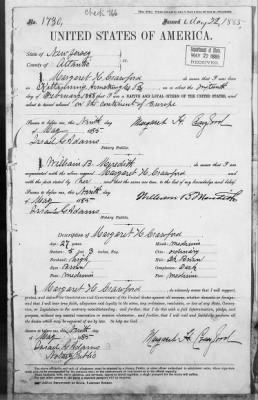 Check 766
No. 1730,
Issued May 22, 1885
UNITED STATES OF AMERICA.
State of New Jersey
County of Atlantic
Department of State
MAY 22 1885
I, Margaret H. Crawford
do swear that I was born
in
Armstrong Co. Pa.
on or about the
day of February 1858 that I am a NATIVE AND LOYAL CITIZEN OF THE UNITED STATES, and
about to travel abroad on the continent of Europe
Sworn to before me, this Ninth day
of May 1885
Margaret H. Crawford
Israel G. Adams
Notary Public.
I, William B.
do swear that I am
acquainted with the above-named Margaret H. Crawford and with the
facts stated by her and that the same are true to the best of my knowledge and belief.
Sworn to before me, this Ninth day
of May 1885
Israel G. Adams
Notary Public.
Description of Margaret H. Crawford
Age: 27 years
Mouth: medium
Stature: 5 feet 3 inches, Eng.
Chin: ordinary
Forehead: high
Hair: Dk Brown
Eyes: Brown
Complexion: Dark
Nose: medium
Face: medium
I, Margaret H. Crawford, do solemnly swear that I will support,
protect, and defend the Constitution and Government of the United States against all enemies, whether domestic or foreign;
and that I will bear true faith, allegiance and loyalty to the same, any ordinance, resolution, or law of any State, Convention,
or Legislature to the contrary notwithstanding; and further, that I do this with a full determination, pledge and
purpose, without any mental reservation or evasion whatsoever; and further, that I will well and faithfully perform all
the duties which may be required of me by law. So help me God.
Sworn to before me, this Ninth day
of May 1885
Margaret H. Crawford
Israel G. Adams
Notary Public